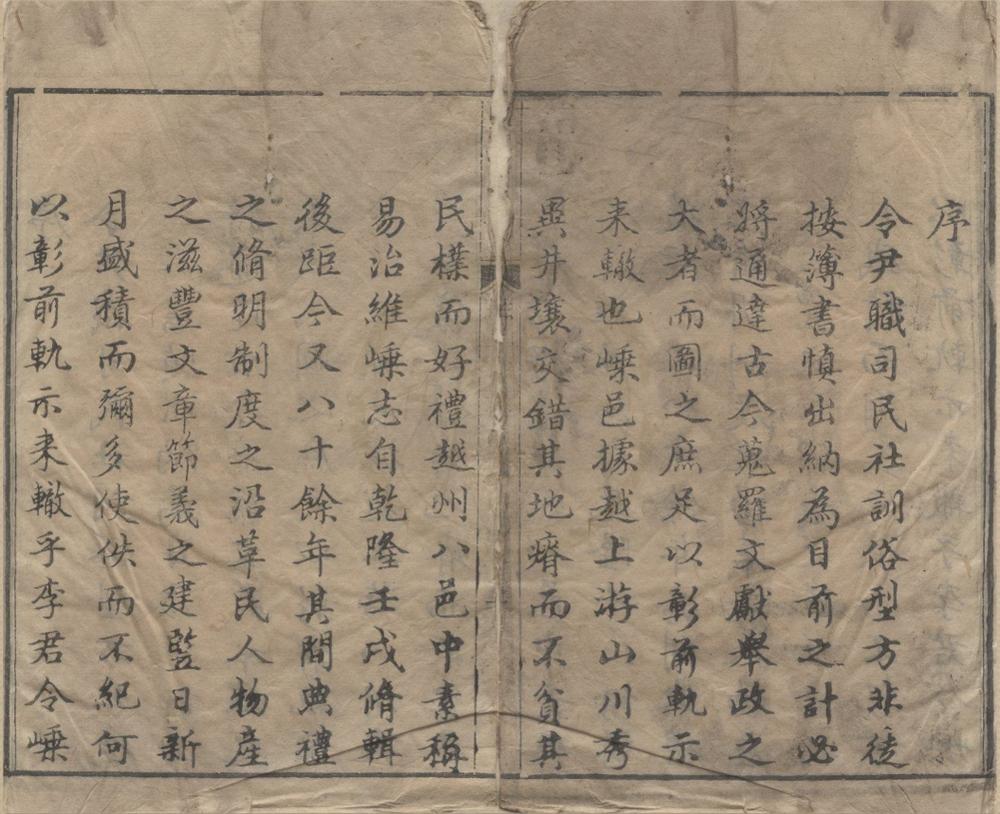 序
令尹職司民社訓俗型方非徒
按簿書慎出納為目前之計必
將通達古今蒐羅文獻舉政之
大者而圖之庶足以彰前軌示
来轍也嵊邑據越上游山川秀
異井壤交錯其地瘠而不貧其
民樸而好禮越州八邑中素稱
易治維嵊志自乾隆壬戌脩輯
後距今又八十餘年其間典禮
之脩明制度之沿革民人物産
之滋豐文章節義之建豎日新
月盛積而彌多使佚而不紀何
以彰前軌示来轍乎李君令嵊